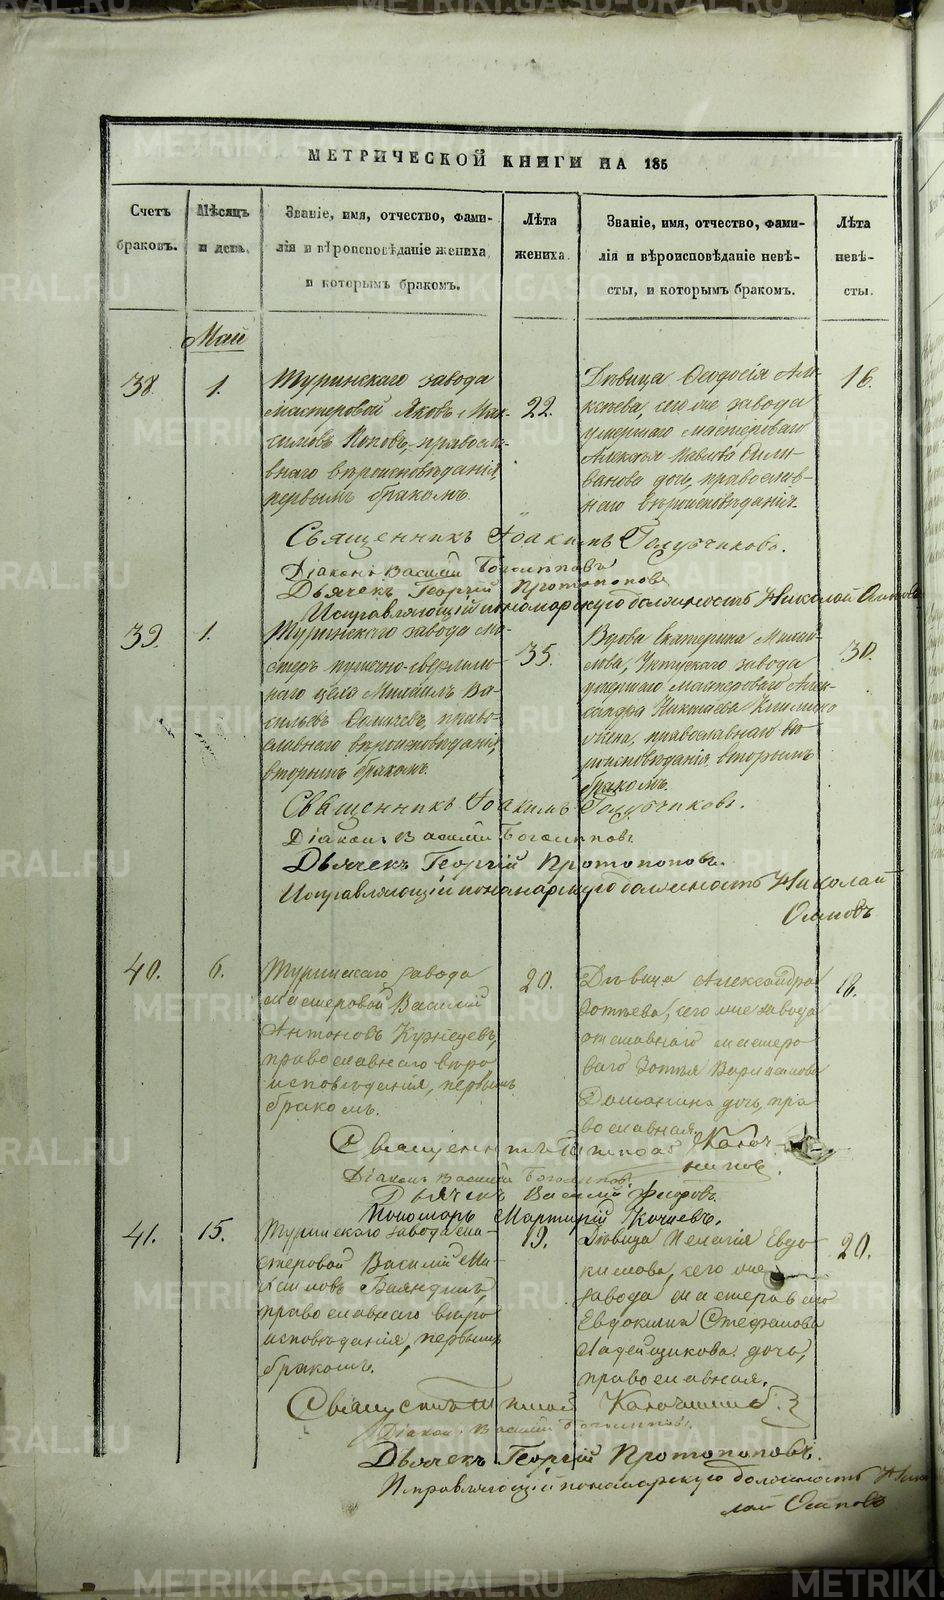 МЕТРИЧЕСКОЙ КНИГИ НА 185
Счетъ браковъ.
Мѣсяцъ и день.
Званіе, имя, отчество, фами-
лія и вѣроисповѣданіе жениха,
и которымъ бракомъ.
Лѣта жениха.
Званіе, имя, отчество, фами-
лія и вѣроисповѣданіе невѣ-
сты, и которымъ бракомъ.
Лѣта невѣ-
сты.
Май
38.
1.
Туринскаго завода
мастеровой Яковъ Мак-
симовъ Поповъ, правосла-
внаго вѣроисповѣданія,
первымъ бракомъ.
22.
Дѣвица Ѳеодосія Але-
ксѣева, сего же завода
умершаго мастероваго
Алексѣя Павлова Сели-
ванова дочь, православ-
наго вѣроисповѣданія.
16.
Священникъ Іоакимъ Голубчиковъ.
Діаконъ Василій Боголѣповъ
Дьячекъ Георгій Протопоповъ
Исправляющій пономарскую должность Николай Осиповъ
39.
1.
Туринскаго завода ма-
стеръ пушечно-сверлиль-
наго цеха Михаилъ Ва-
сильевъ православнаго вѣроисповѣданія,
вторымъ бракомъ.
35.
Вдова Екатерина
Уктускаго завода
умершаго мастероваго Алек-
сандра Никитева
православнаго вѣ-
роисповѣданія, вторымъ
бракомъ.
30.
Священникъ Іоакимъ Голубчиковъ.
Діаконъ Василій Боголѣповъ
Дьячекъ Георгій Протопоповъ.
Исправляющій пономарскую должность Николай
Осиповъ
40.
6.
Туринскаго завода
мастеровой Василій
Антоновъ Кузнецовъ,
православнаго вѣро
исповѣданія, первымъ
бракомъ.
20.
Дѣвица Александра
Зотѣева, сего же завода
отставнаго мастеро
ваго Зотѣя Варламова
дочь, пра
вославная.
Священникъ
Діаконъ Василій Боголѣповъ
Дьячекъ Василій
Пономарь Мартирій Кочневъ.
41.
15.
Туринскаго завода ма-
стеровой Василій Ми-
хаиловъ Баяндинъ,
православнаго вѣро
исповѣданія, первымъ
бракомъ.
19.
Дѣвица Пелагія Евдо-
кимова, сего же
завода мастероваго
Евдокима Стефанова
Ладейщикова дочь,
православная.
20.
Діаконъ Василій Боголѣповъ.
Дьячекъ Георгій Протопоповъ.
Исправляющій пономарскую должность Нико
лай Осиповъ
METRIKI.GASO-URAL.RU